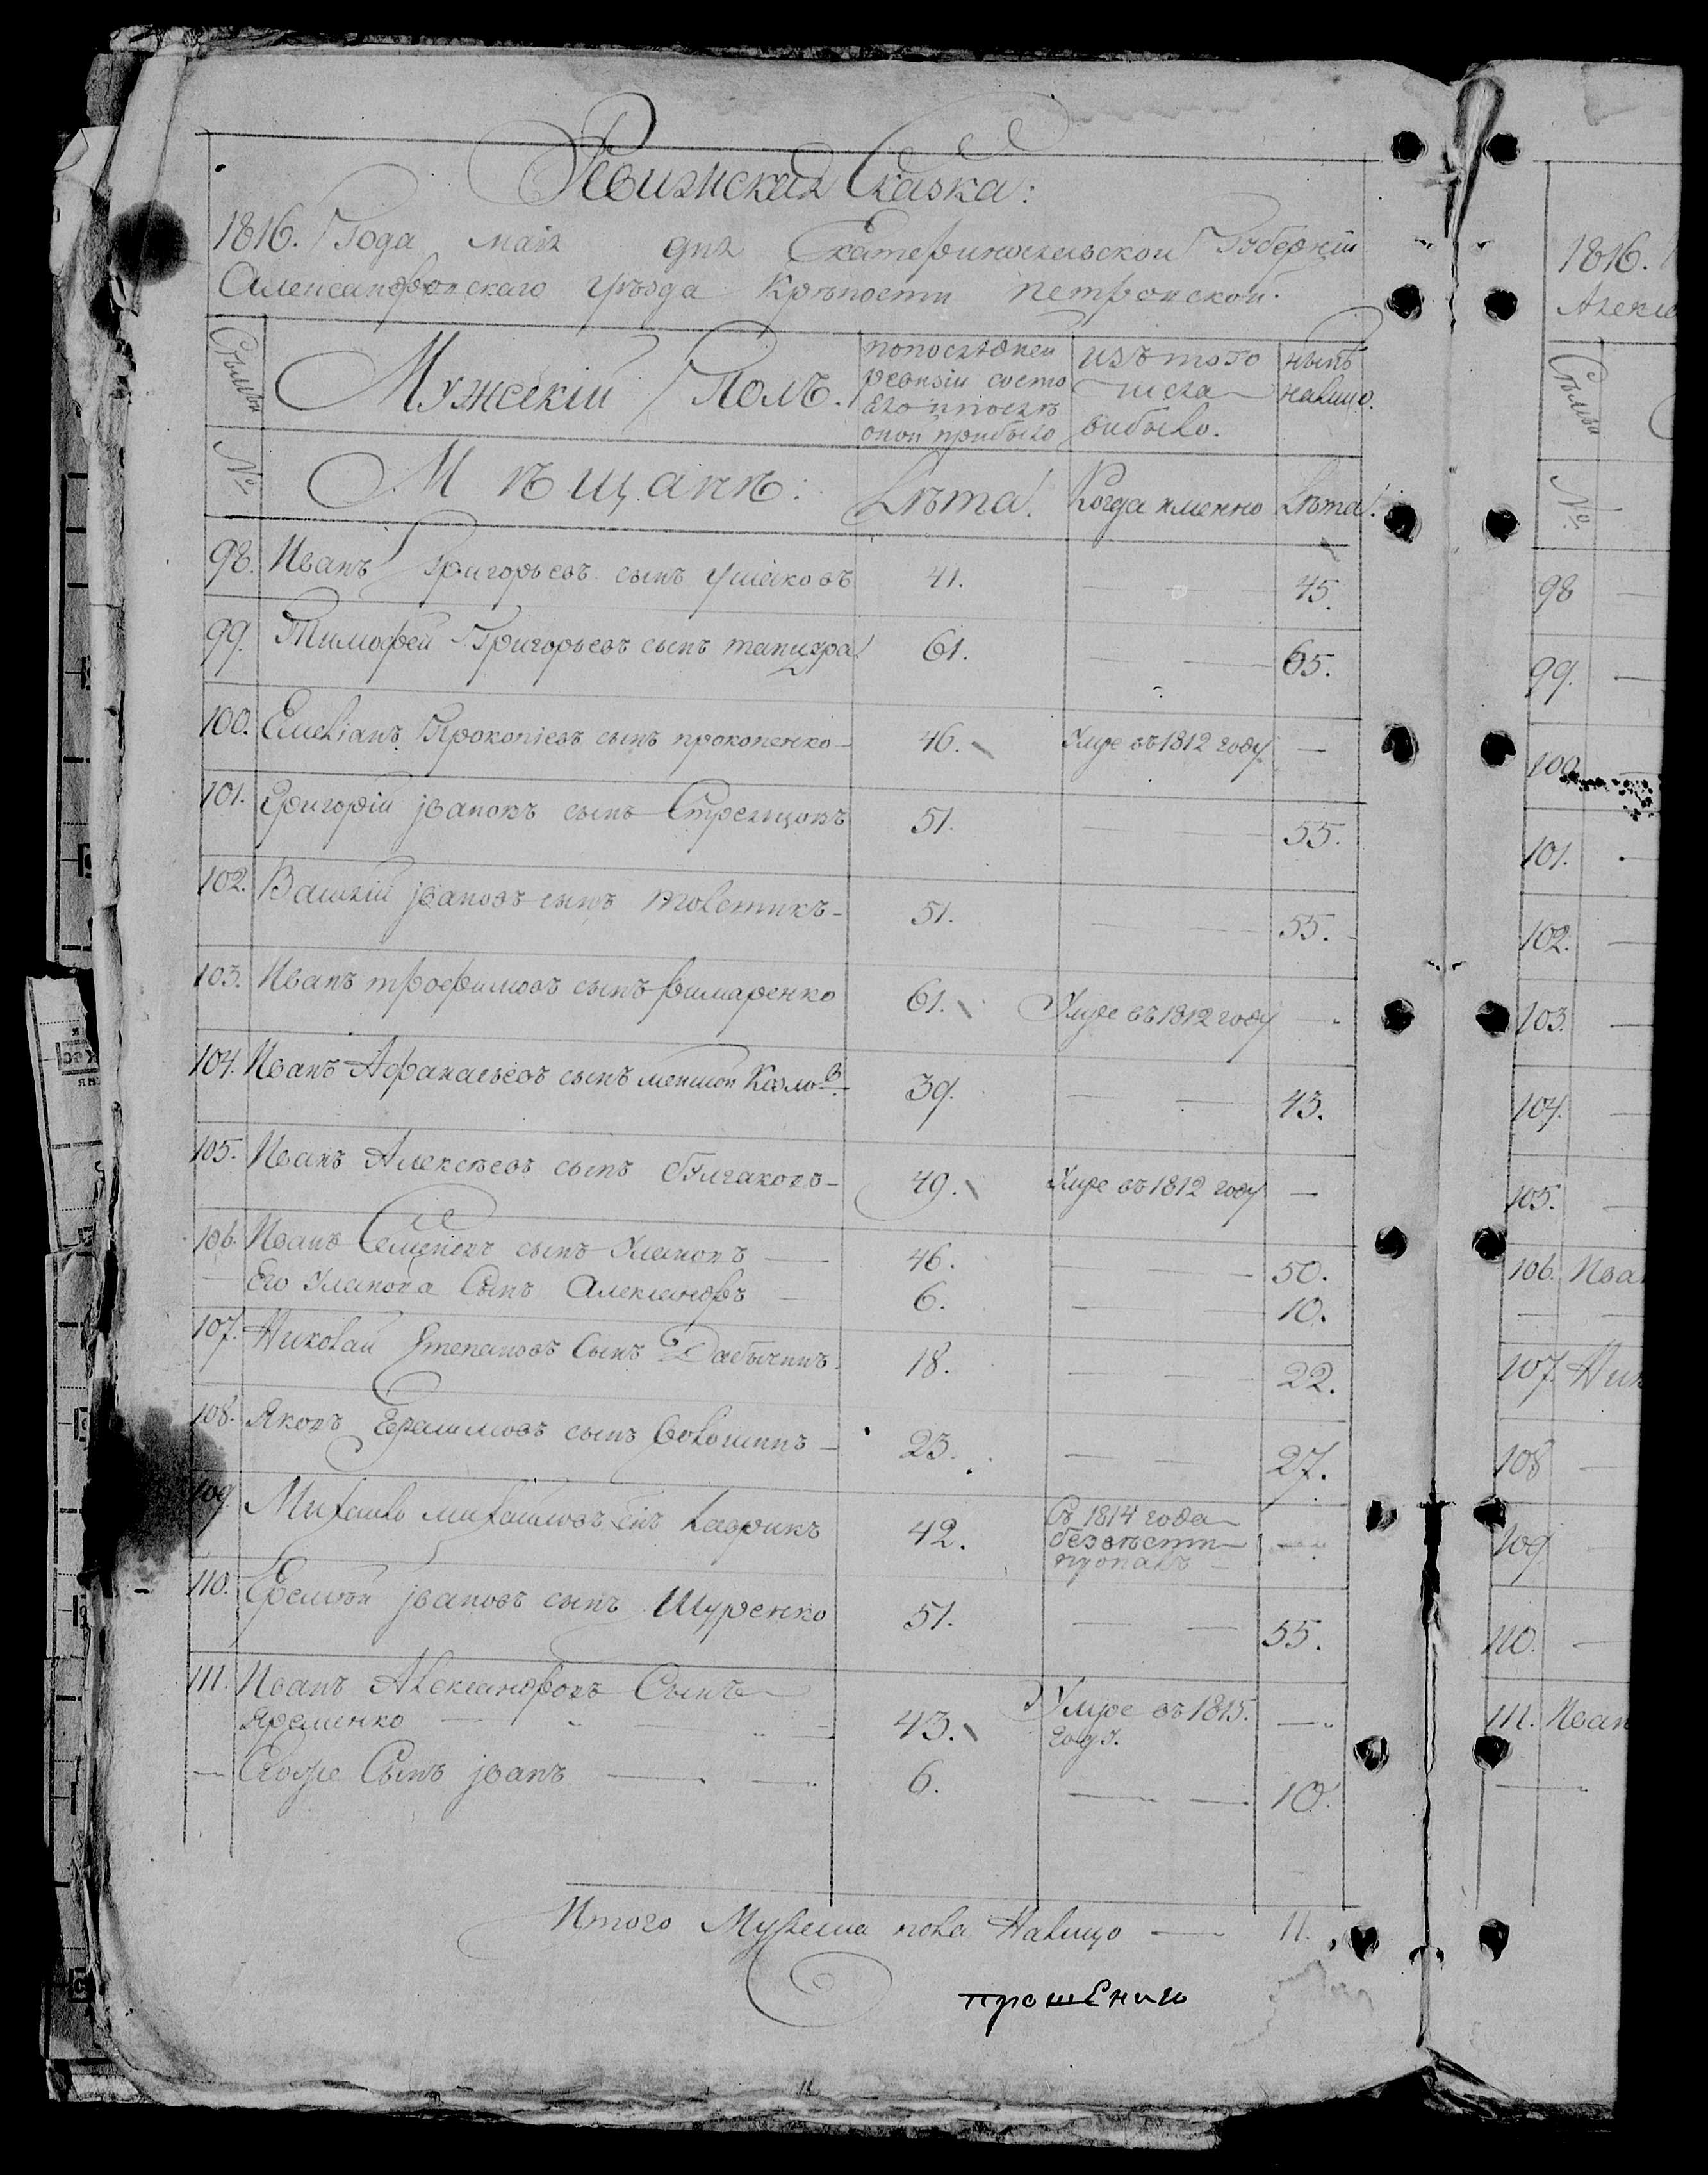 Ревижская Сказка:
1816. Года маія дня Екатеринославской Губерніи
Александровскаго уѣзда Крѣпости петровской.
Сѣмьи
Мужескій Полъ.
попослѣдней
ревизіи состо
яло и послѣ
оной прибыло
изъ того
числа
выбыло.
нынѣ
налицо.
№
Мѣщанѣ:
Лѣта.
Когда именно
Лѣта.
98. Иванъ Григорьевъ сынъ ушаковъ 41. — — 45.
99. Тимофей Григорьевъ сынъ 61. — — 65.
100. Емеліанъ Прокопіевъ сынъ прокопенко 46. Умре въ 1812 году —
101. Григорій јвановъ сынъ Стрелцовъ 51. — — 55.
102. Василій јвановъ сынъ 51. — — 55.
103. Иванъ трофимовъ сынъ 61. Умре въ 1812 году —
104. Иванъ Афанасьевъ сынъ меншой Козловъ 39. — — 43.
105. Иванъ Алексѣевъ сынъ булгаковъ 49. Умре въ 1812 году —
106. Иванъ Семеновъ сынъ Улановъ — 46. — 50.
— Его Уланова Сынъ Александръ — 6. — 10.
107. Николай Степановъ Сынъ 18. — — 22.
108. Яковъ Ерасимовъ сынъ Солошинъ 23. — — 27.
109. Михаило михаиловъ снъ лаврикъ 42. Съ 1814 года
безвѣсти
пропалъ —
110. Еремѣй јвановъ сынъ Щуренко 51. — — 55.
111. Иванъ Александровъ Сынъ
Яременко — 43. Умре въ 1815.
году. —
— Евоже Сынъ јванъ — — 6. — — 10.
Итого Мужеска пола Налицо — 11.
прошЕнию
1816.
Алекса
Сѣмьи
№
98
99.
100
101.
102.
103.
104.
105.
106. Ива
107. Ник
108
109
110.
111. Иван